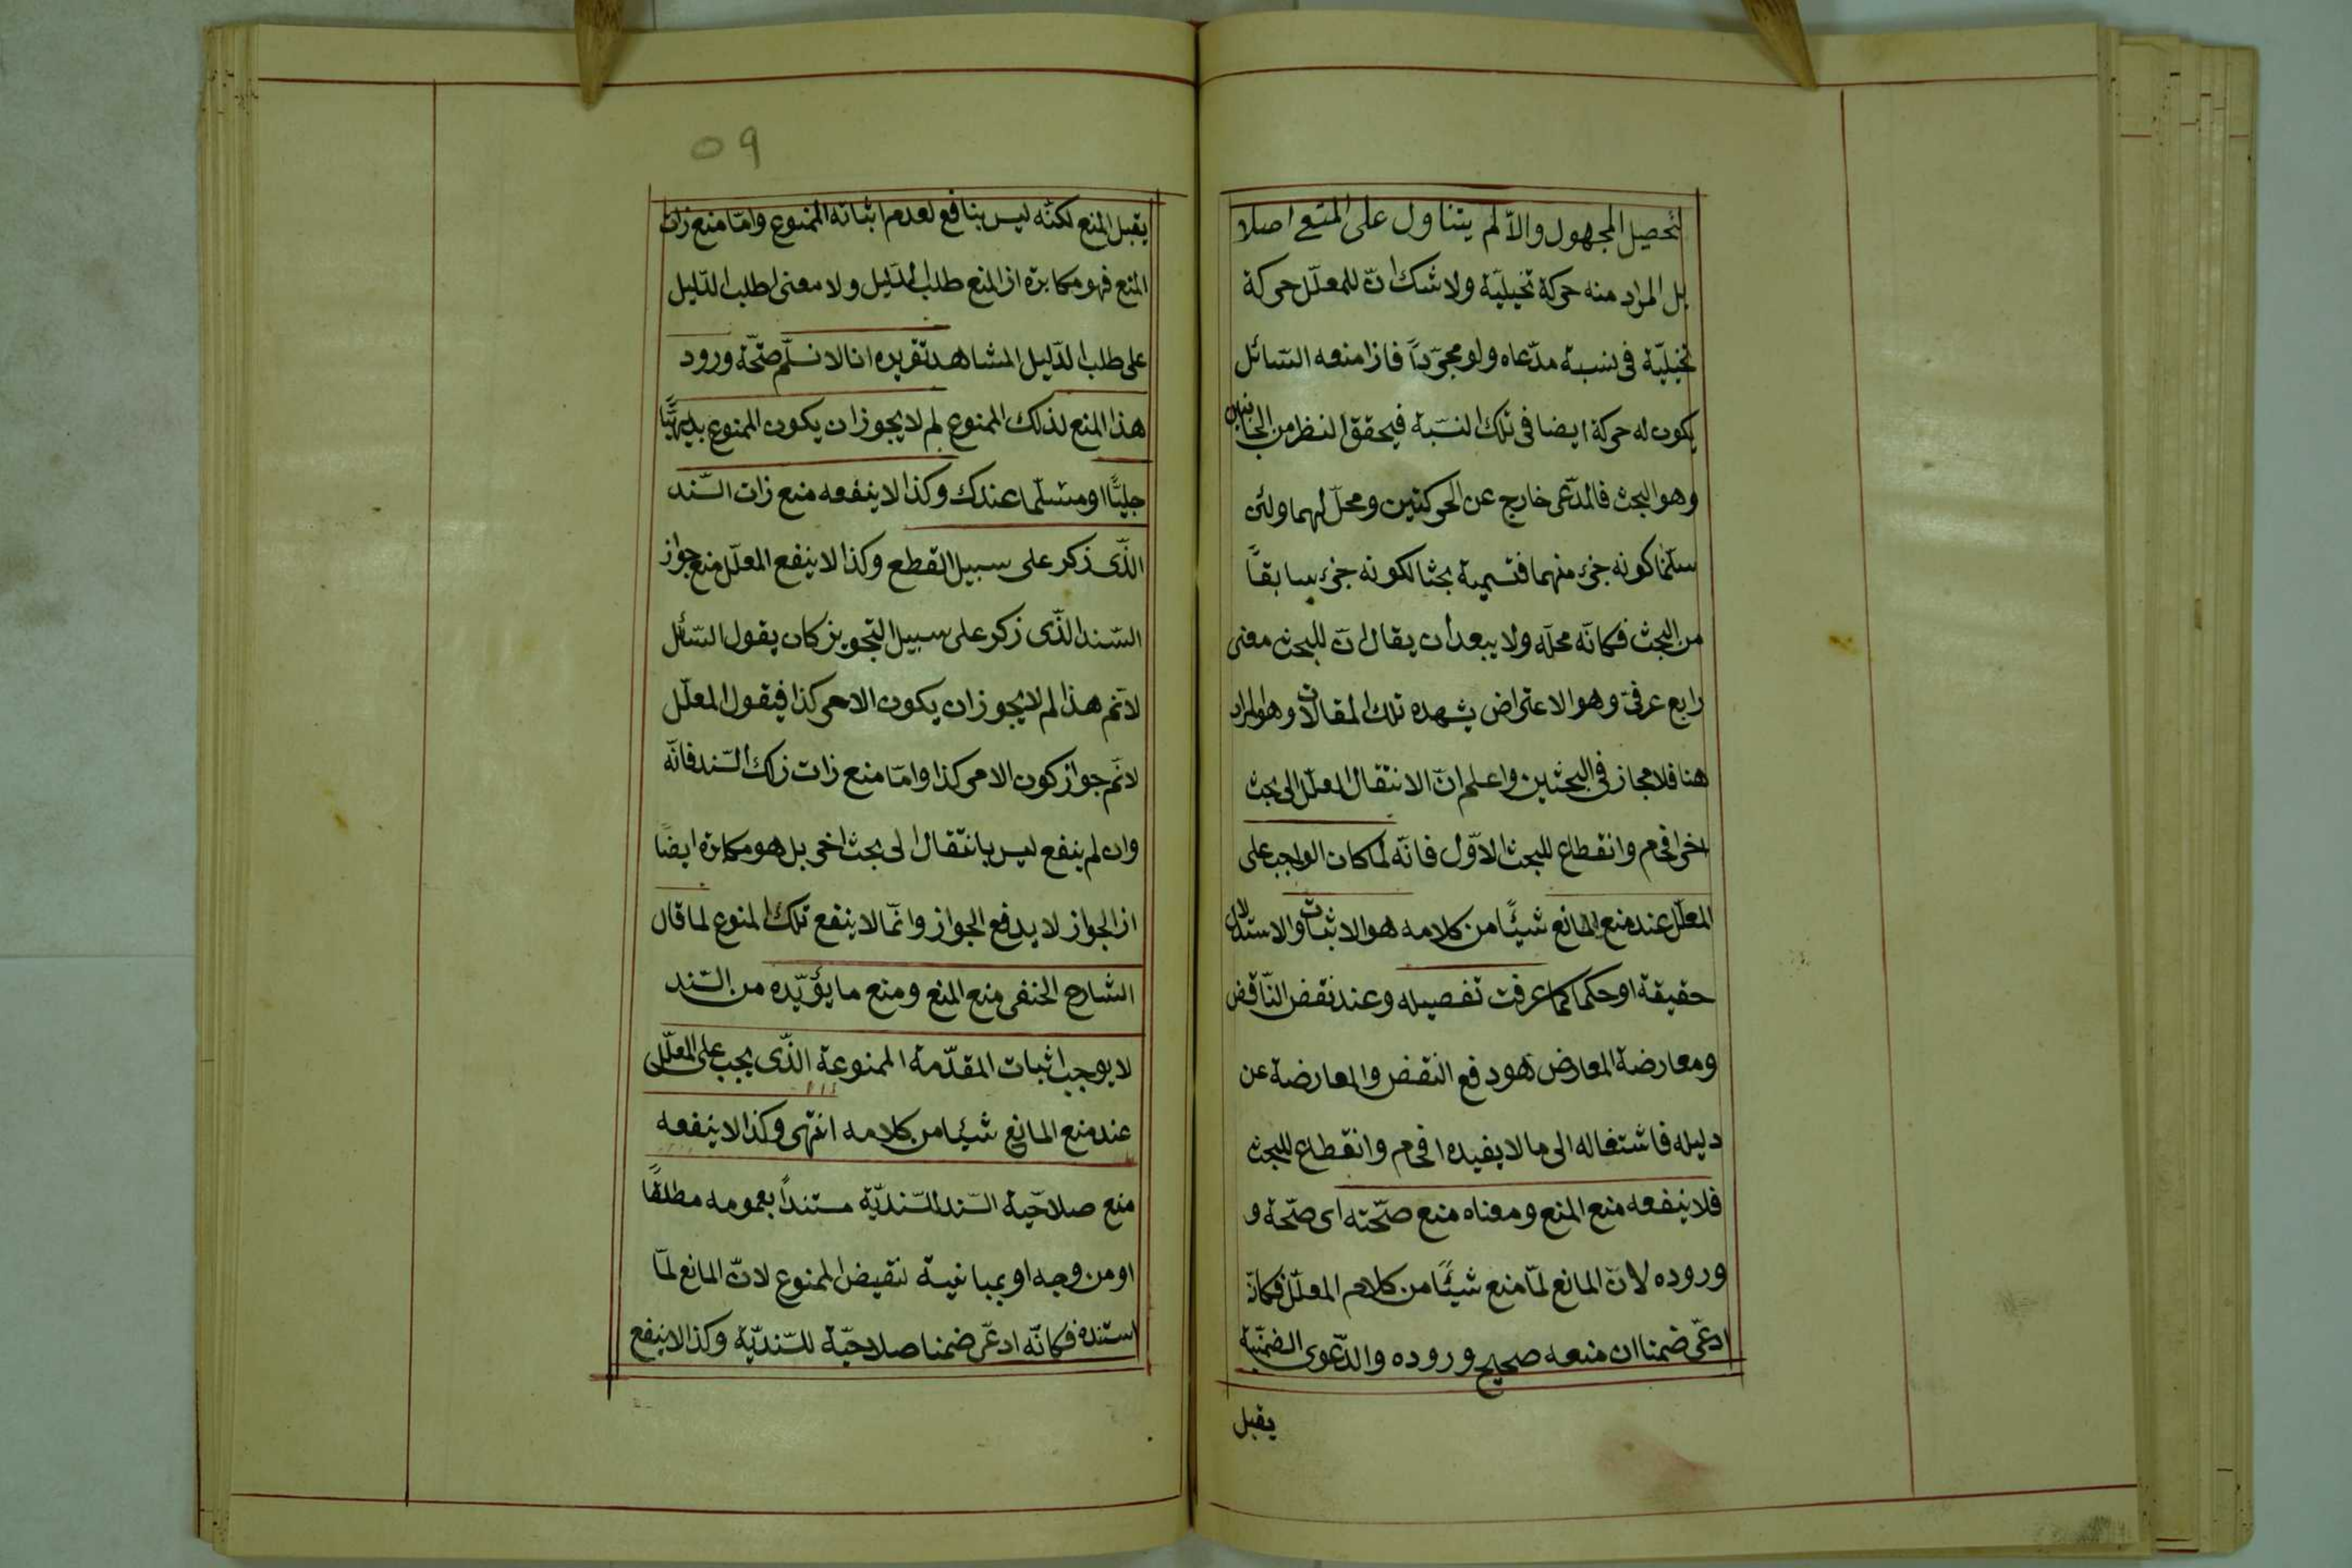 لتحصيل المجهول والّا لم يتناول على المنع اصلا
بل المراد منه حركة تخيليّة ولا شك انّ للمعلّل حركة
تخيليّة فى نسبة مدّعاه ولو مجرّداً فاذا منعه السّائل
يكون له حركة ايضا فى تلك النّسبة فيحقق النظر من الجانبين
وهو البحث فالمدّعى خارج عن الحركتين ومحلّ لهما ولئن
سلّمنا كونه جزء منهما فتسمية بحثا لكونه جزء سابقاً
من البحث فكانّه محلّه ولا يبعد ان يقال انّ للبحث معنى
رابع عرفىّ وهو الاعتراض يشهده تلك المقالات وهو المراد
هنا فلا مجاز فى البحثين واعلم انّ الانتقال المعلّل الى بحث
اخر افحام وانقطاع للبحث الاوّل فانّه لمّا كان الواجب على
المعلّل عند منع المانع شيئًا من كلامه هو الاثبات والاستدلال
حقيقة او حكما كما عرفت تفصيله وعند نقض النّاقض
ومعارضة المعارض هو دفع النقض والمعارضة عن
دليله فاشتغاله الى ما لا يفيده افحام وانقطاع للبحث
فلا ينفعه منع المنع ومعناه منع صحّته اى صحّة و
وروده لانّ المانع لمّا منع شيئًا من كلام المعلّل فكانّ
ادعّى ضمنا ان منعه صحيح وروده والدّعوى الضمنيّة
يقبل
٥٩
يقبل المنع لكنّه ليس بنافع لعدم اثباته الممنوع وامّا منع ذات
المنع فهو مكابرة اذ المنع طلب الدّليل ولا معنى لطلب الدّليل
على طلب الدّليل المشاهد تقريره انا لا نسلّم صحّة ورود
هذا المنع لذلك الممنوع لم لا يجوز ان يكون الممنوع بديهيًّا
جليًّا او مسلّما عندك وكذا لا ينفعه منع ذات السّند
الذّى ذكر على سبيل القطع وكذا لا ينفع المعلّل منع جواز
السّند الذّى ذكر على سبيل التجويز كان يقول السّائل
لانّم هذا لم لا يجوز ان يكون الامر كذا فيقول المعلّل
لانّم جواز كون الامر كذا وامّا منع ذات ذلك السّند فانّه
وان لم ينفع ليس بانتقال الى بحث اخر بل هو مكابرة ايضًا
اذ الجواز لا يدفع الجواز وانّما لا ينفع تلك المنوع لما قال
الشارح الحنفى منع المنع ومنع ما يؤيّده من السّند
لا يوجب اثبات المقدّمة الممنوعة الذّى يجب على المعلّل
عند منع المانع شيئا من كلامه انتهى وكذا لا ينفعه
منع صلاحيّة السّند للسّنديّة مستنداً بعمومه مطلقًا
او من وجه او بمباينية لنقيض الممنوع لانّ المانع لمّا
استنده فكانّه ادعّى ضمنا صلاحيّة للسّنديّة وكذا لا ينفع